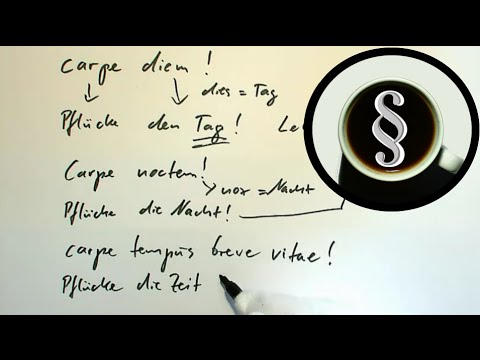 Carpe diem!
dies = Tag
Pflücke den Tag! Le
Carpe noctem!
nox = Nacht
Pflücke die Nacht!
carpe tempus breve vitae!
Pflücke die Zeit
§